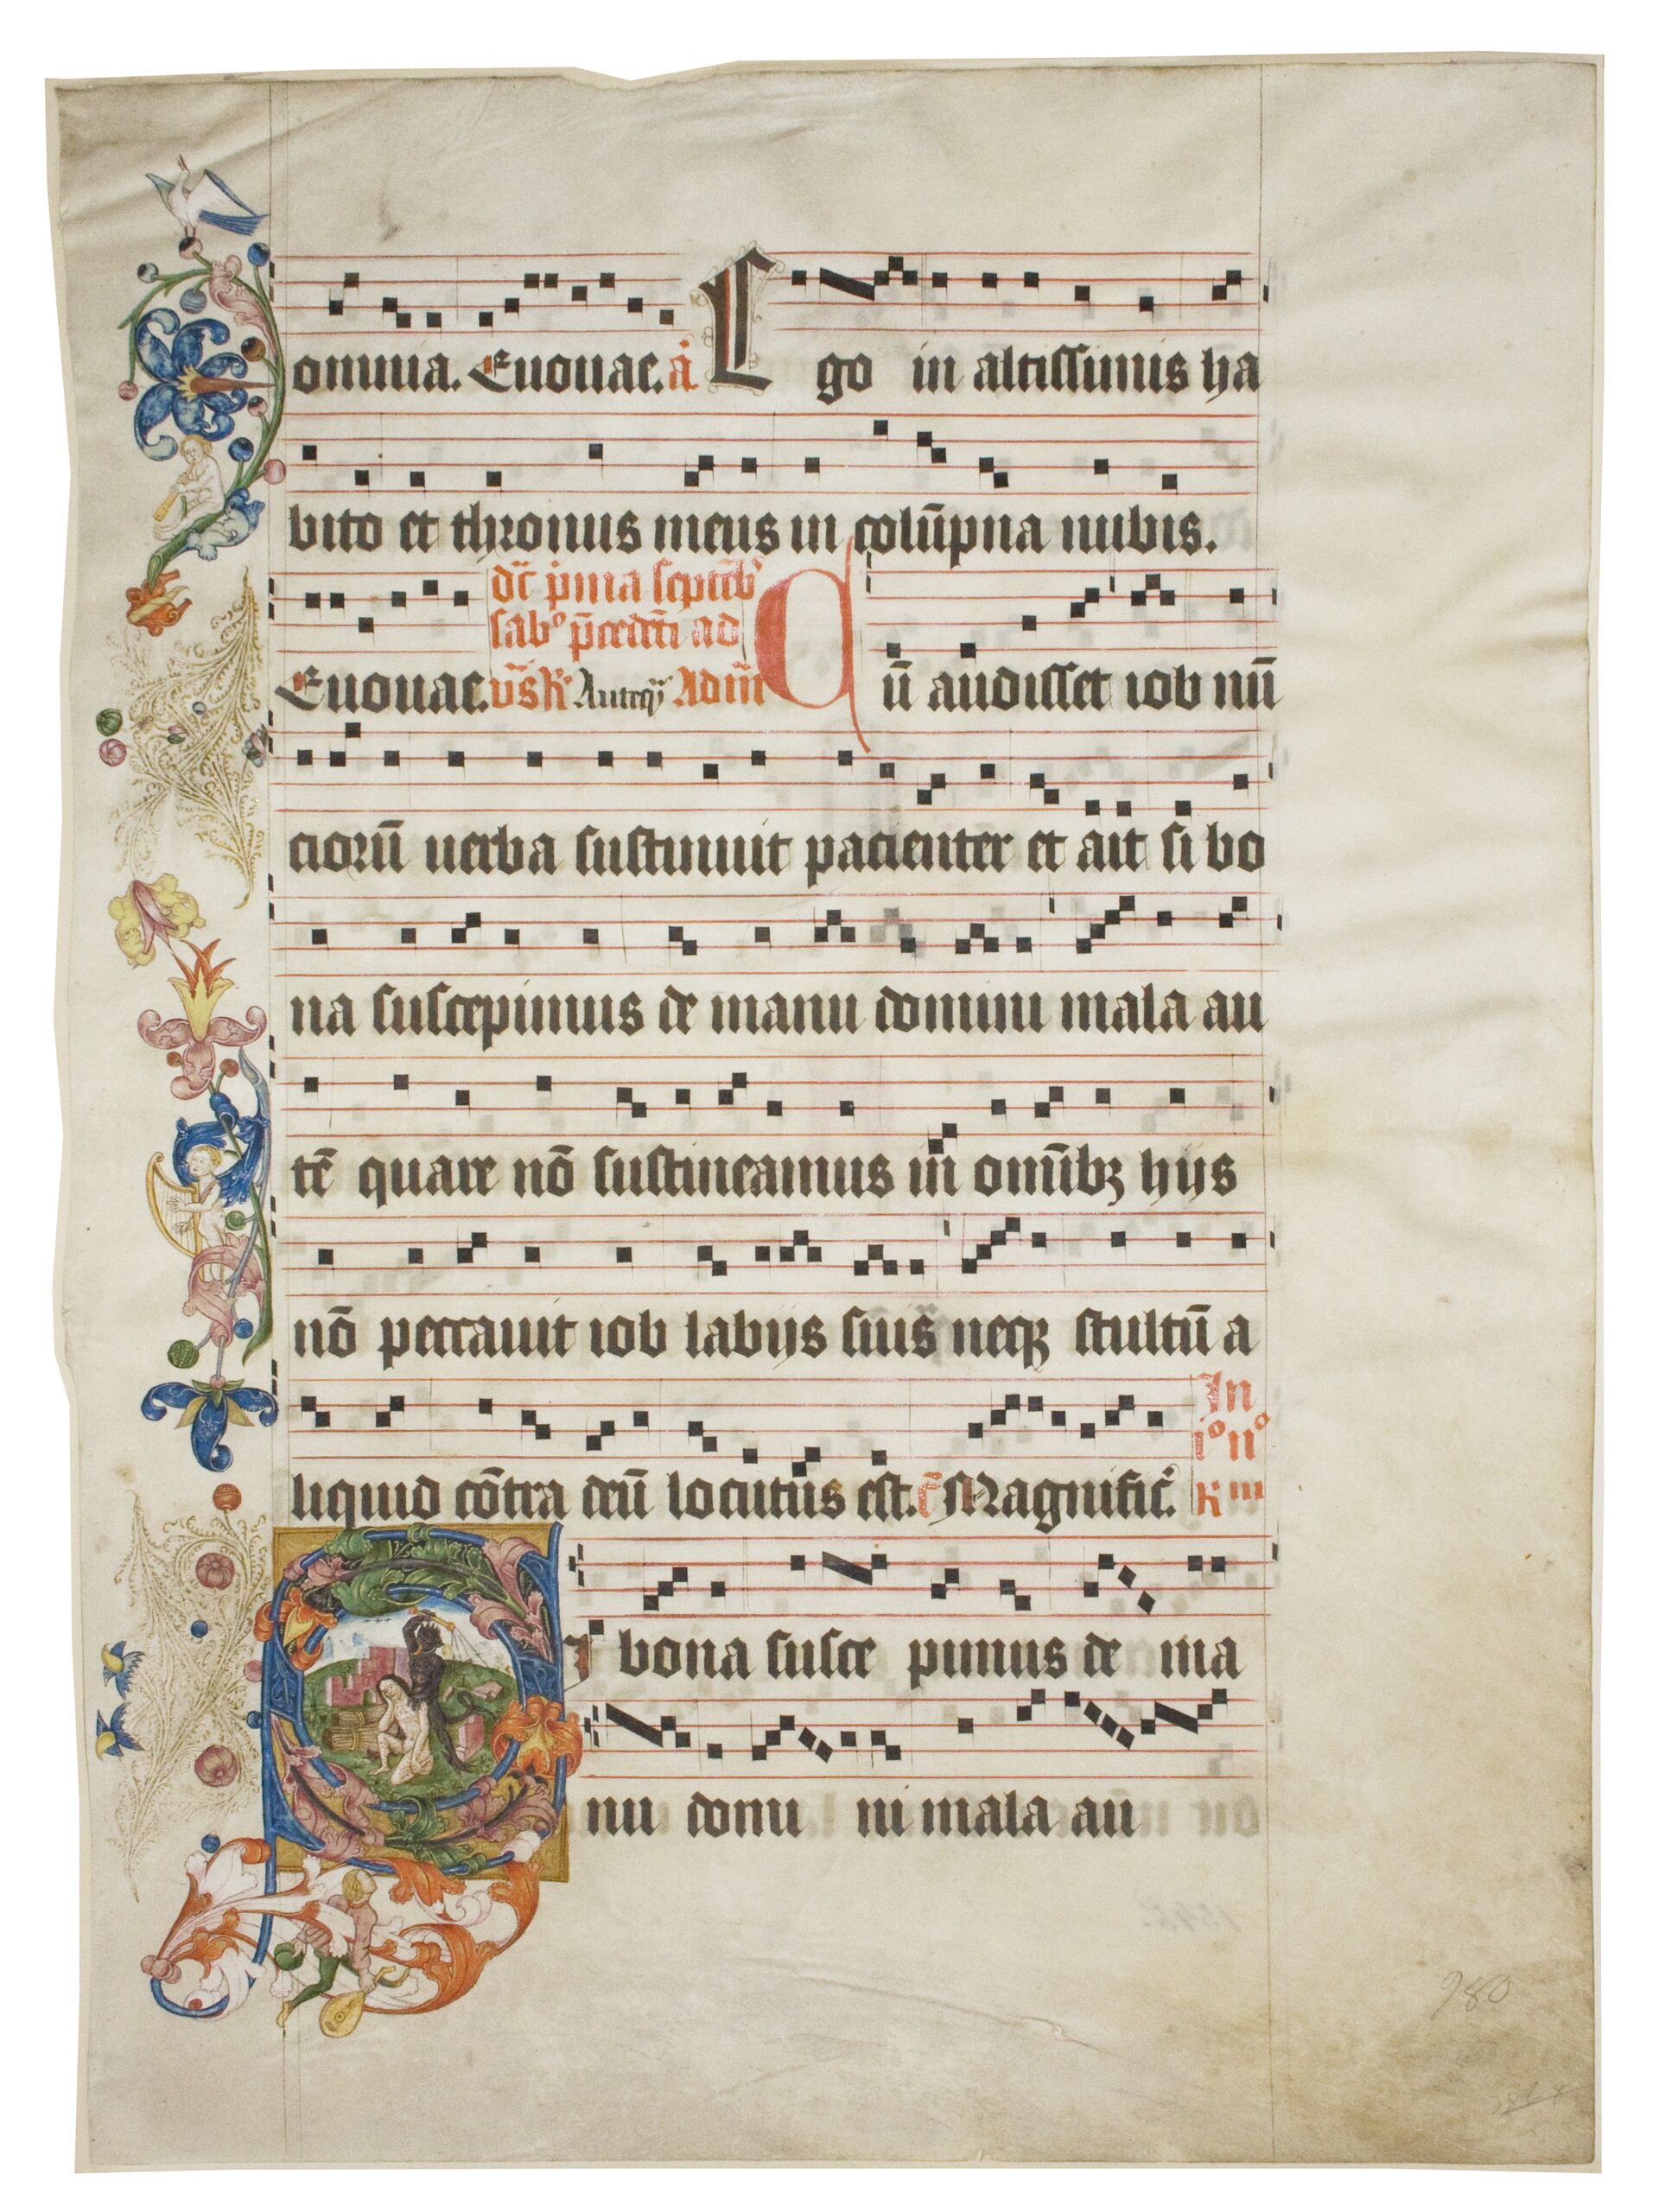 omnia. Euouae. a Ego in altissimis ha
bito et thronus meus in colūpna nubis.
dc̄ pͥma septēbͬ
sabᵒ p̄cedēti ad
Euouae. Ad m̄ Cū audisset iob nū
ciorū uerba sustinuit pacienter et ait si bo
na suscepimus de manu domini mala au
tē quare nō sustineamus in omībꝫ hijs
nō peccauit iob labijs suis neqꝫ stultū a
In
liquid cōtra deū locutus est. Magnific̄.
SI bona susce pimus de ma
nu domi ni mala au
980